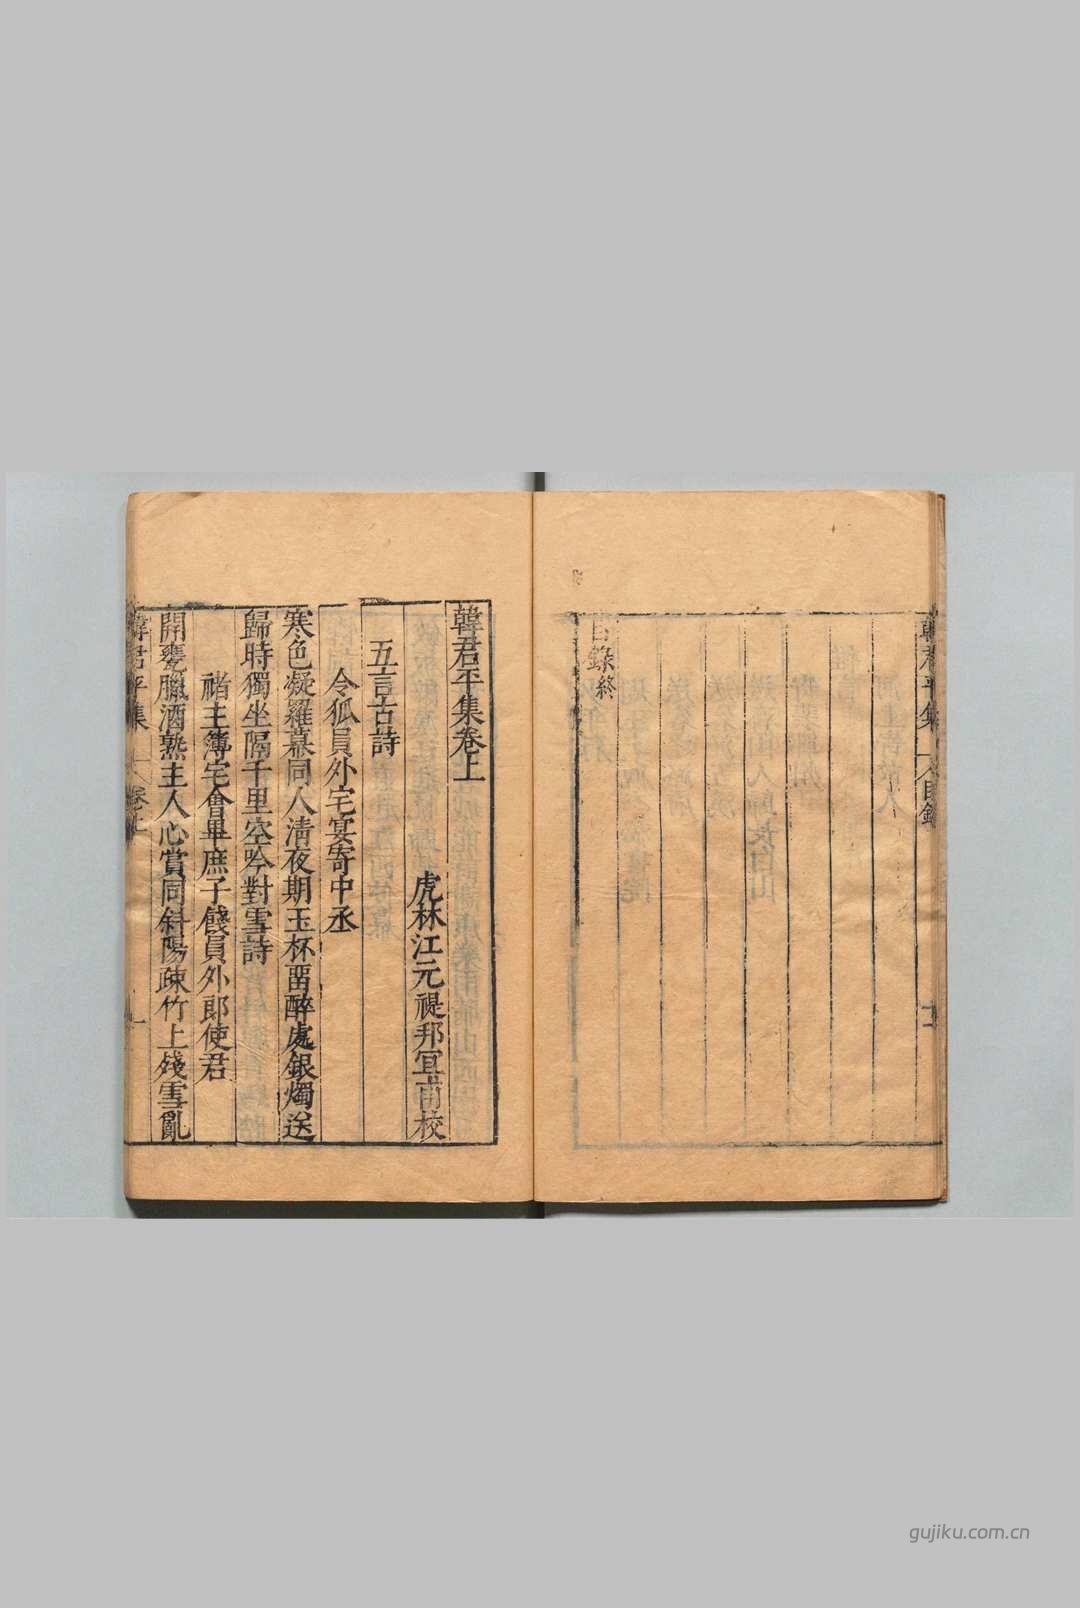 目錄終
韓君平集
目錄
韓君平集卷上
虎林江元禔邦冝甫校
五言古詩
令狐員外宅宴寄中丞
寒色凝羅幕同人清夜期玉杯畱醉處銀燭送
歸時獨坐隔千里空吟對雪詩
褚主簿宅會畢庶子餞員外郎使君
開甕臘酒熟主人心賞同斜陽疎竹上殘雪亂
韓君平集
卷上
一
gujiku.com.cn